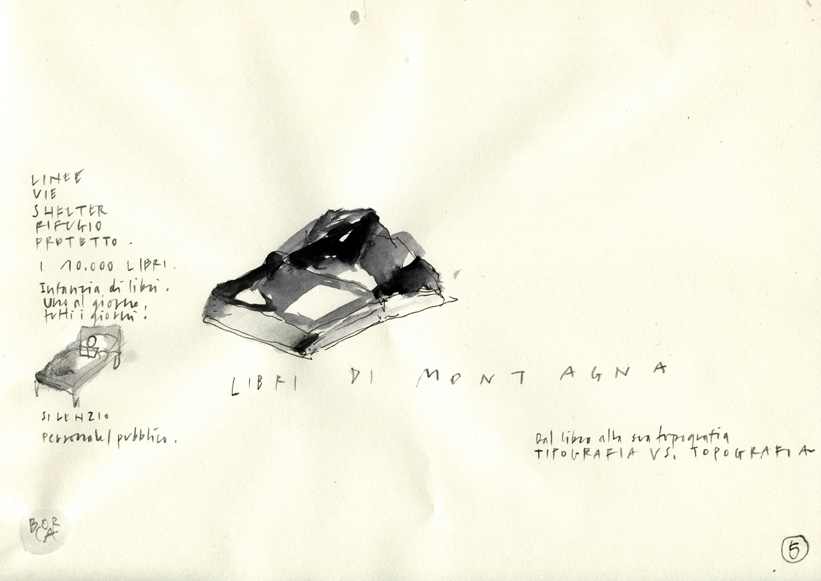 LINEE
VIE
SHELTER
RIFUGIO
PROTETTO.
I 10.000 LIBRI.
Infanzia di libri.
Uno al giorno,
tutti i giorni!
SILENZIO
Personale/pubblico.
LIBRI DI MONTAGNA
Dal libro alla sua topografia
TIPOGRAFIA VS. TOPOGRAFIA
BORCA
5